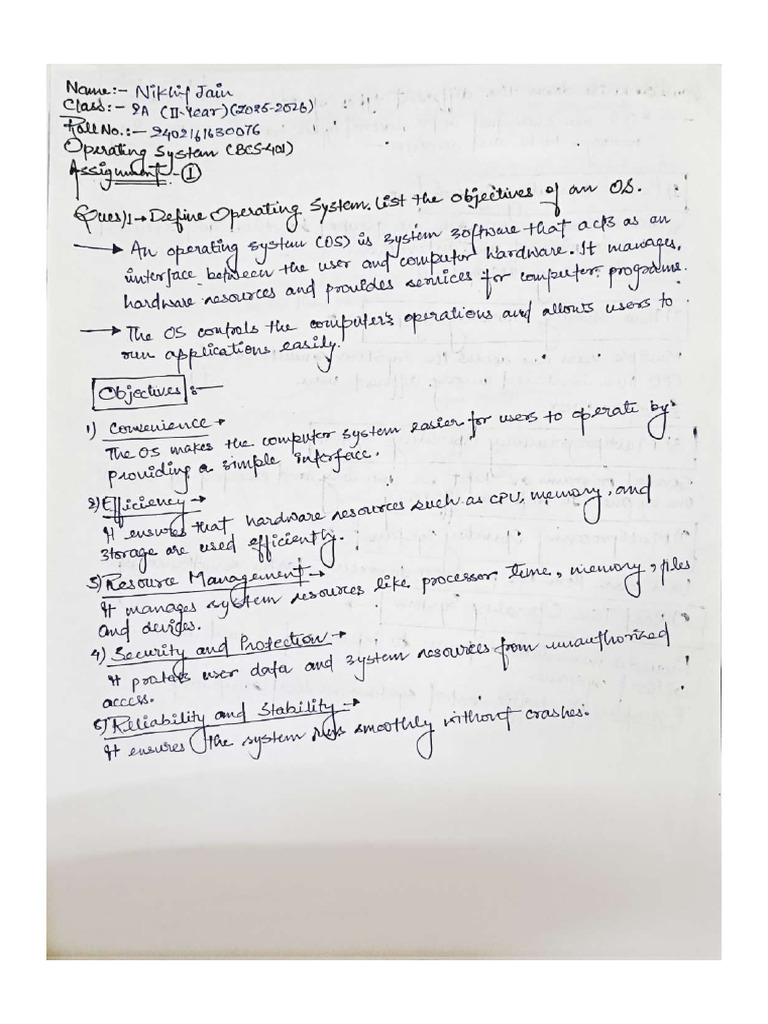 Name:- Nikhil Jain
Class:- 2A (II-Year)(2025-2026)
Roll No.:- 2402161630076
Operating System (BCS-401)
Assignment - 1
Ques)1→ Define Operating System. List the objectives of an OS.
→ An operating system (OS) is system software that acts as an
interface between the user and computer hardware. It manages
hardware resources and provides services for computer programs.
→ The OS controls the computer's operations and allows users to
run applications easily.
Objectives :-
1) Convenience →
The OS makes the computer system easier for users to operate by
providing a simple interface.
2) Efficiency →
It ensures that hardware resources such as CPU, memory, and
storage are used efficiently.
3) Resource Management →
It manages system resources like processor time, memory, files
and devices.
4) Security and Protection →
It protects user data and system resources from unauthorized
access.
5) Reliability and Stability →
It ensures the system runs smoothly without crashes.